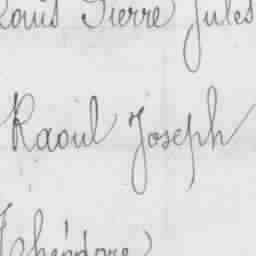 Louis Pierre Jules
Raoul Joseph
Théodore